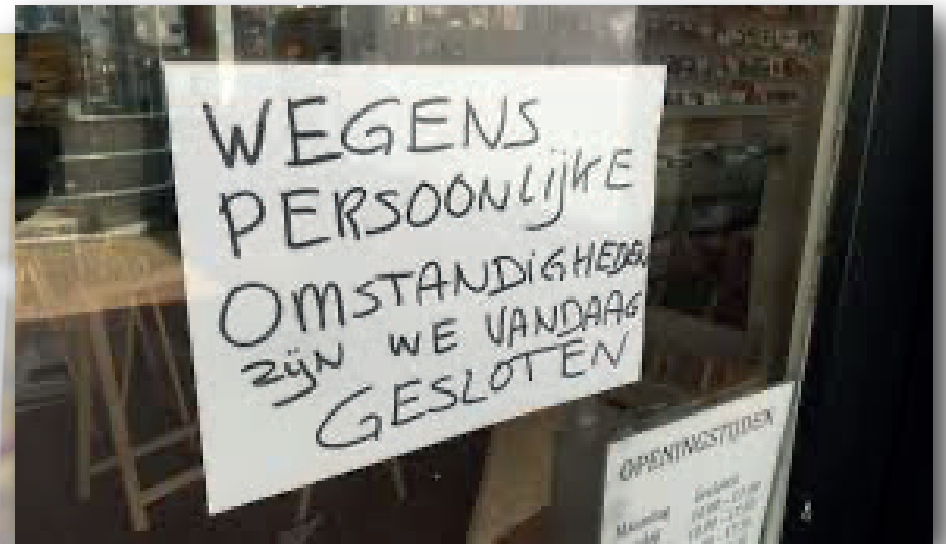 WEGENS
PERSOONLIJKE
OMSTANDIGHEDEN
ZIJN WE VANDAAG
GESLOTEN
OPENINGSTIJDEN
Maandag